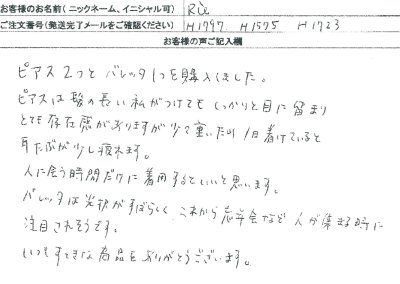 お客様のお名前(ニックネーム、イニシャル可) Rie
ご注文番号(発送完了メールをご確認ください) H1797 H1575 H1723
お客様の声ご記入欄
ピアス2つと バレッタ1つを購入しました。
ピアスは髪の長い私がつけても しっかりと目に留まり
とても存在感がありますが少々重いため 1日着けていると
耳たぶが少し疲れます。
人に会う時間だけに着用するといいと思います。
バレッタは光沢がすばらしく これから忘年会など 人が集まる時に
注目されそうです。
いつもすてきな商品をありがとうございます。